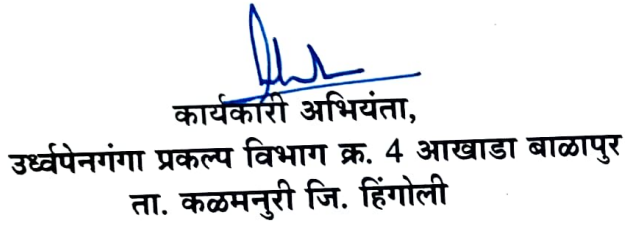 कार्यकारी अभियंता,
उर्ध्वपेनगंगा प्रकल्प विभाग क्र. 4 आखाडा बाळापुर
ता. कळमनुरी जि. हिंगोली